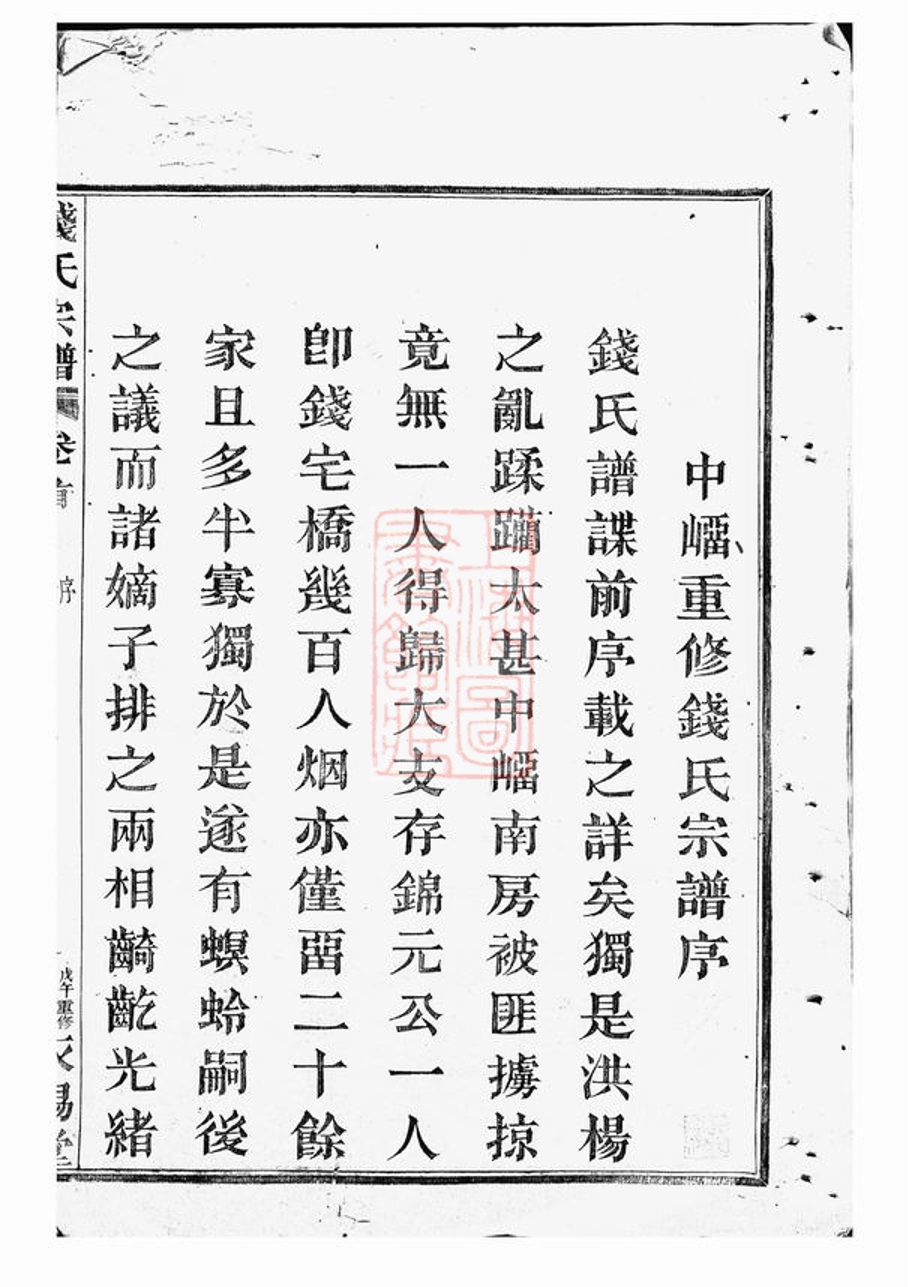 中嵧重修錢氏宗譜序
錢氏譜諜前序載之詳矣獨是洪楊
之亂蹂躪太甚中嵧南房被匪擄掠
竟無一人得歸大支存錦元公一人
卽錢宅橋幾百人烟亦僅畱二十餘
家且多半寡獨於是遂有螟蛉嗣後
之議而諸嫡子排之兩相齮齕光緒
錢氏宗譜
卷首
序
戊午重修
上海圖書館藏